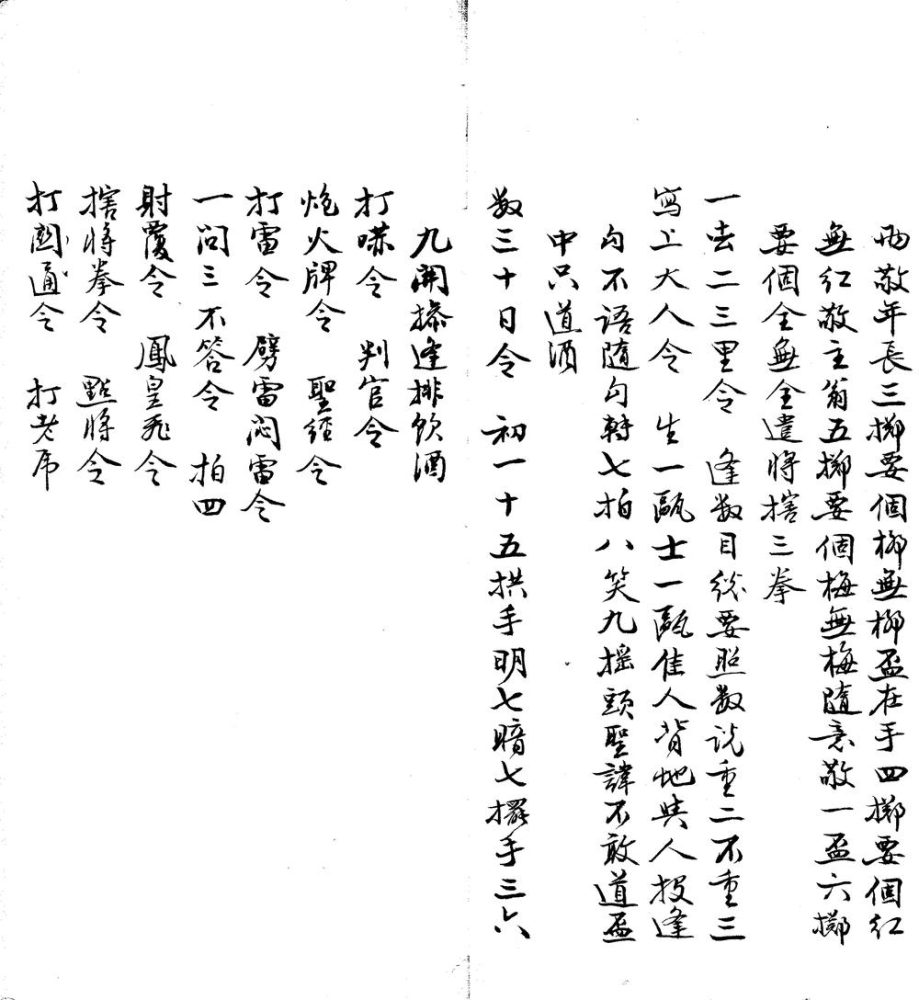 兩敬年長三擲要個柳無柳盃在手四擲要個紅
無紅敬主翁五擲要個梅無梅隨意敬一盃六擲
要個全無全遣將搳三拳
一去二三里令 逢數目総要照數説重二不重三
寫上大人令 生一甌士一甌佳人背地與人投逢
勾不語隨勾轉七拍八笑九摇頭聖諱不敢道盃
中只道酒
數三十日令 初一十五拱手明七暗七擺手三六
九開摻逢排飲酒
打嗏令 判官令
炮火牌令 聖經令
打雷令 劈雷悶雷令
一問三不答令 拍四
射覆令 鳳皇飛令
搳將拳令 點將令
打關通令 打老虎